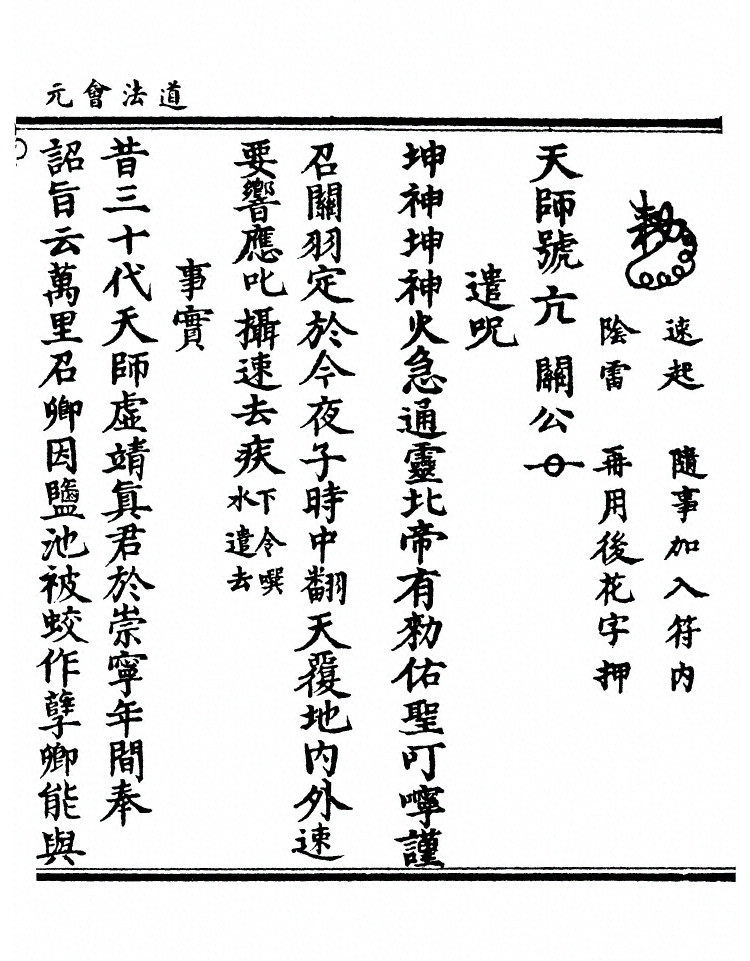 道法會元
勑
速起　隨事加入符内
陰雷　再用後花字押
天師號亢　關公
遣呪
坤神坤神火急通靈北帝有勑佑聖叮嚀謹
召關羽定於今夜子時中翻天覆地内外速
要響應叱攝速去疾下令噀水遣去
事實
昔三十代天師虛靖眞君於崇寧年間奉
詔旨云萬里召卿因鹽池被蛟作孽卿能與